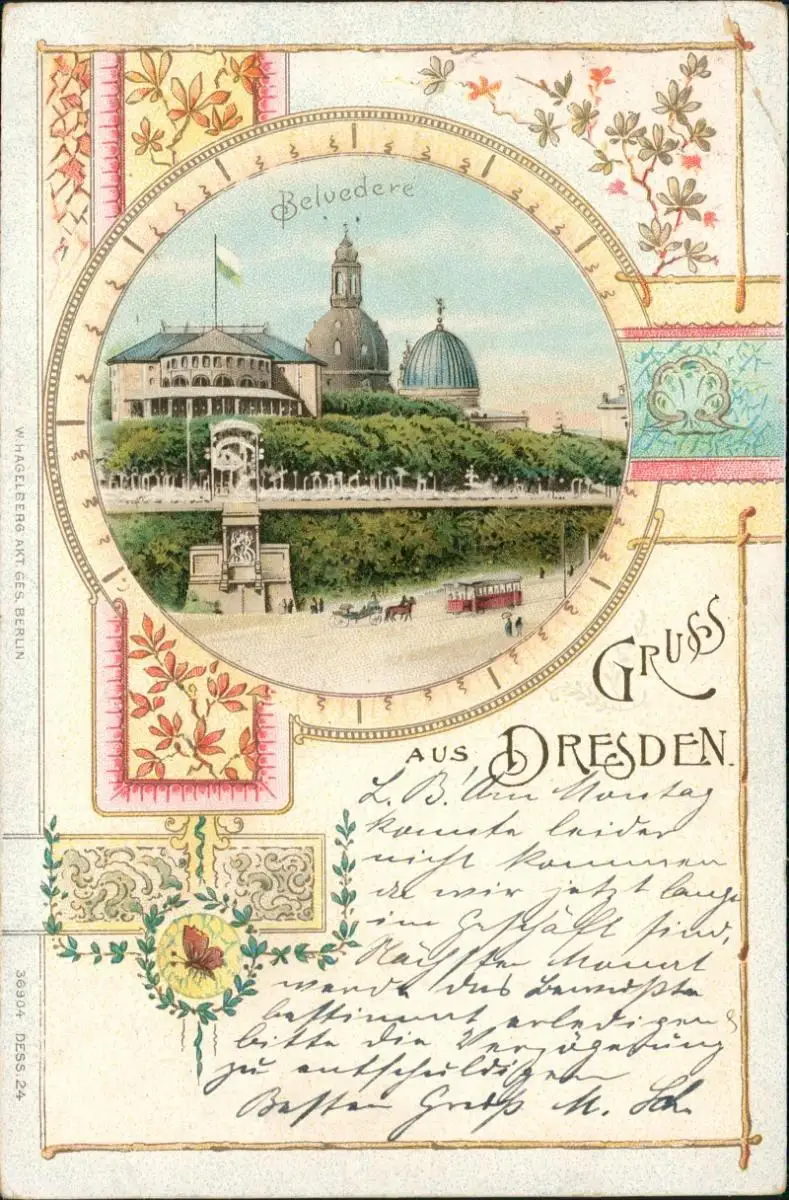 Belvedere
GRUSS
AUS DRESDEN.
L. B! Am Montag
konnte leider
nicht kommen
da wir jetzt lange
im Geschäft sind,
Nächsten Monat
werde das Bewußte
bestimmt erledigen &
bitte die Verzögerung
zu entschuldigen
Besten Gruß M. Sch.
W. HAGELBERG AKT. GES. BERLIN
36904 DESS. 24